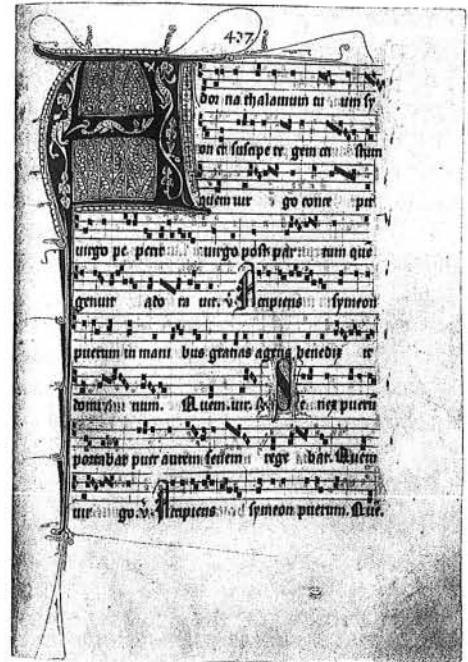 437
A
dor na thalamum tu um sy
on et suscipe re gem cri stum
quem vir go conce pit
virgo pe perit virgo post par tum quē
genuit ado ra vit. v̄ Accipiens symeon
puerum in mani bus gratias agens benedix it
domi num. Quem. vir. Se nex puerū
portabat puer autem senem rege bat. Quem
vir go. v̄ Accipiens symeon puerum. Que.